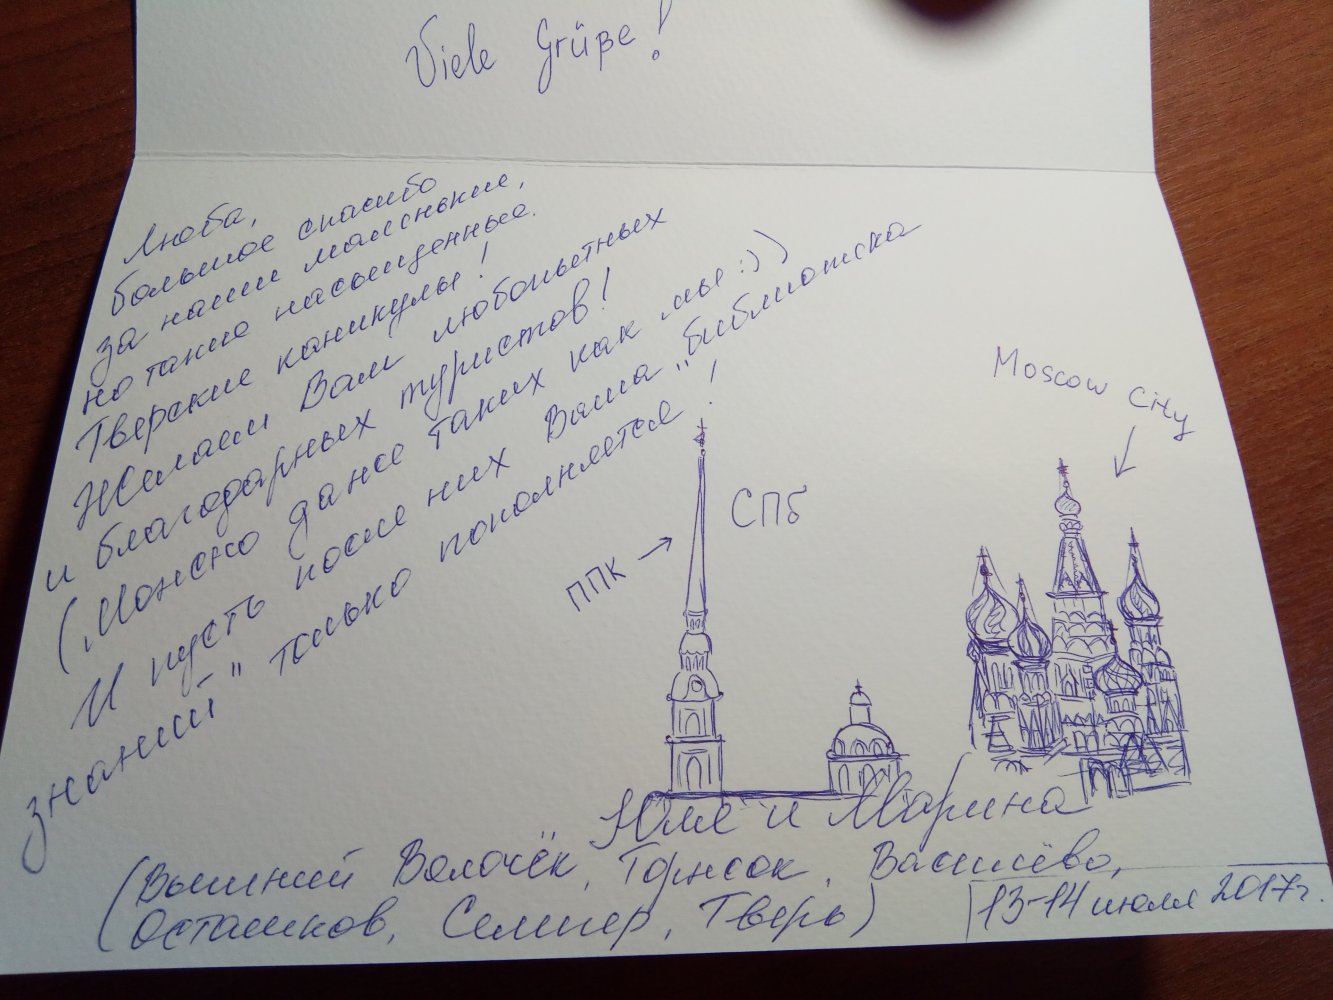 Viele Grüße!
Люба,
большое спасибо
за наши маленькие,
но такие насыщенные
Тверские каникулы!
Желаем Вам любопытных
и благодарных туристов!
(Можно даже таких как мы :))
И пусть после них Ваша „библиотека
знаний" только пополняется!
Moscow City
СПб
ППК →
Юля и Марина
(Вышний Волочёк, Торжок, Василёво,
Осташков, Селигер, Тверь)
13-14 июля 2017г.